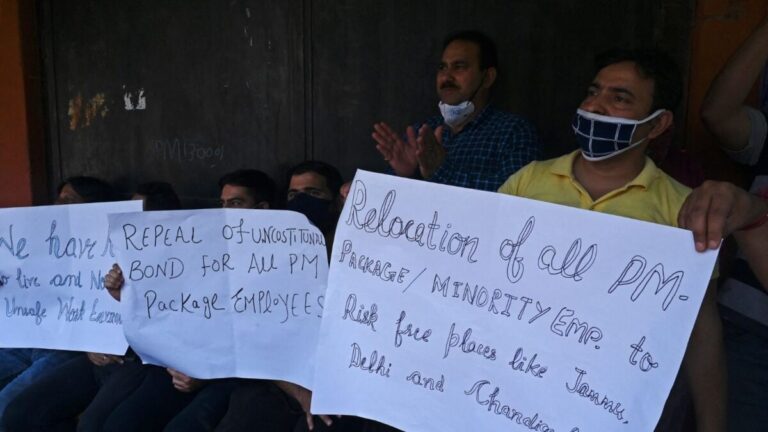 We have
live and
REPEAL OF
BOND FOR All PM
Package EMPLOYEES
Relocation of all PM-
PACKAGE/ MINORITY EMP. to
Risk free places like Jammu,
Delhi and Chandig